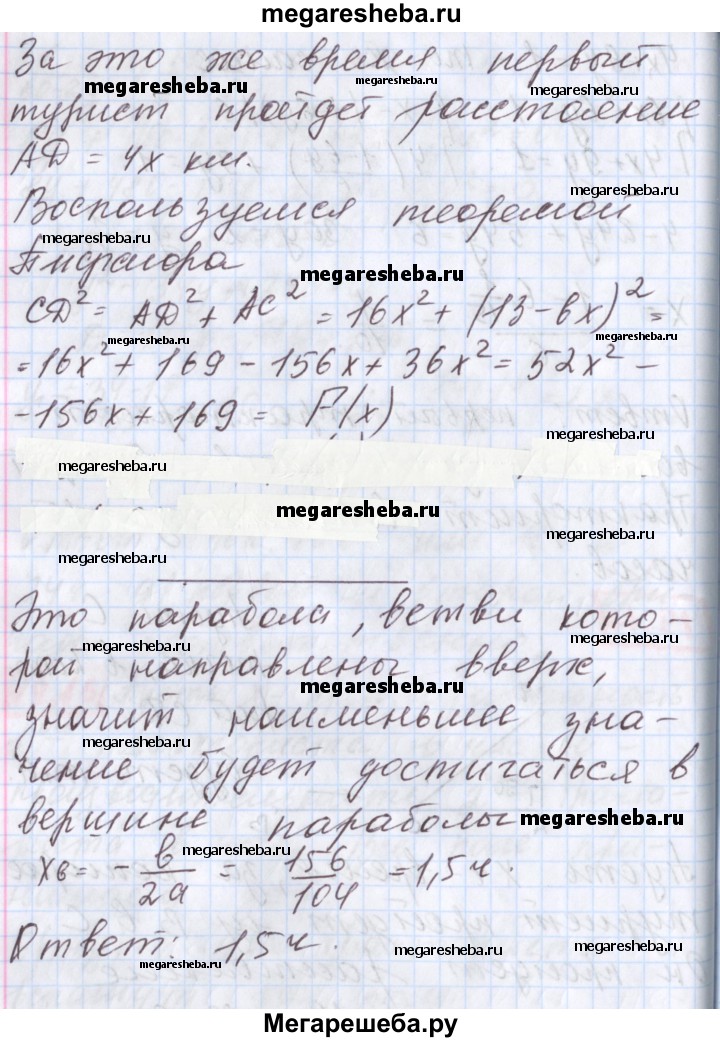 megaresheba.ru
За это же время первый
megaresheba.ru megaresheba.ru
турист пройдет расстояние
megaresheba.ru
AD = 4x км.
megaresheba.ru
Воспользуемся теоремой
megaresheba.ru
Пифагора
megaresheba.ru
CD² = AD² + AC² = 16x² + (13-6x)² =
megaresheba.ru
= 16x² + 169 - 156x + 36x² = 52x² -
-156x + 169 = F(x)
megaresheba.ru megaresheba.ru
megaresheba.ru
megaresheba.ru
megaresheba.ru
Это парабола, ветви кото-
megaresheba.ru megaresheba.ru
рой направлены вверх,
megaresheba.ru
значит наименьшее зна-
megaresheba.ru
чение будет достигаться в
вершине параболы
megaresheba.ru
xв = - в/2a = 156/104 = 1,5 ч.
megaresheba.ru
Ответ: 1,5 ч.
megaresheba.ru megaresheba.ru
megaresheba.ru
Мегарешеба.ру